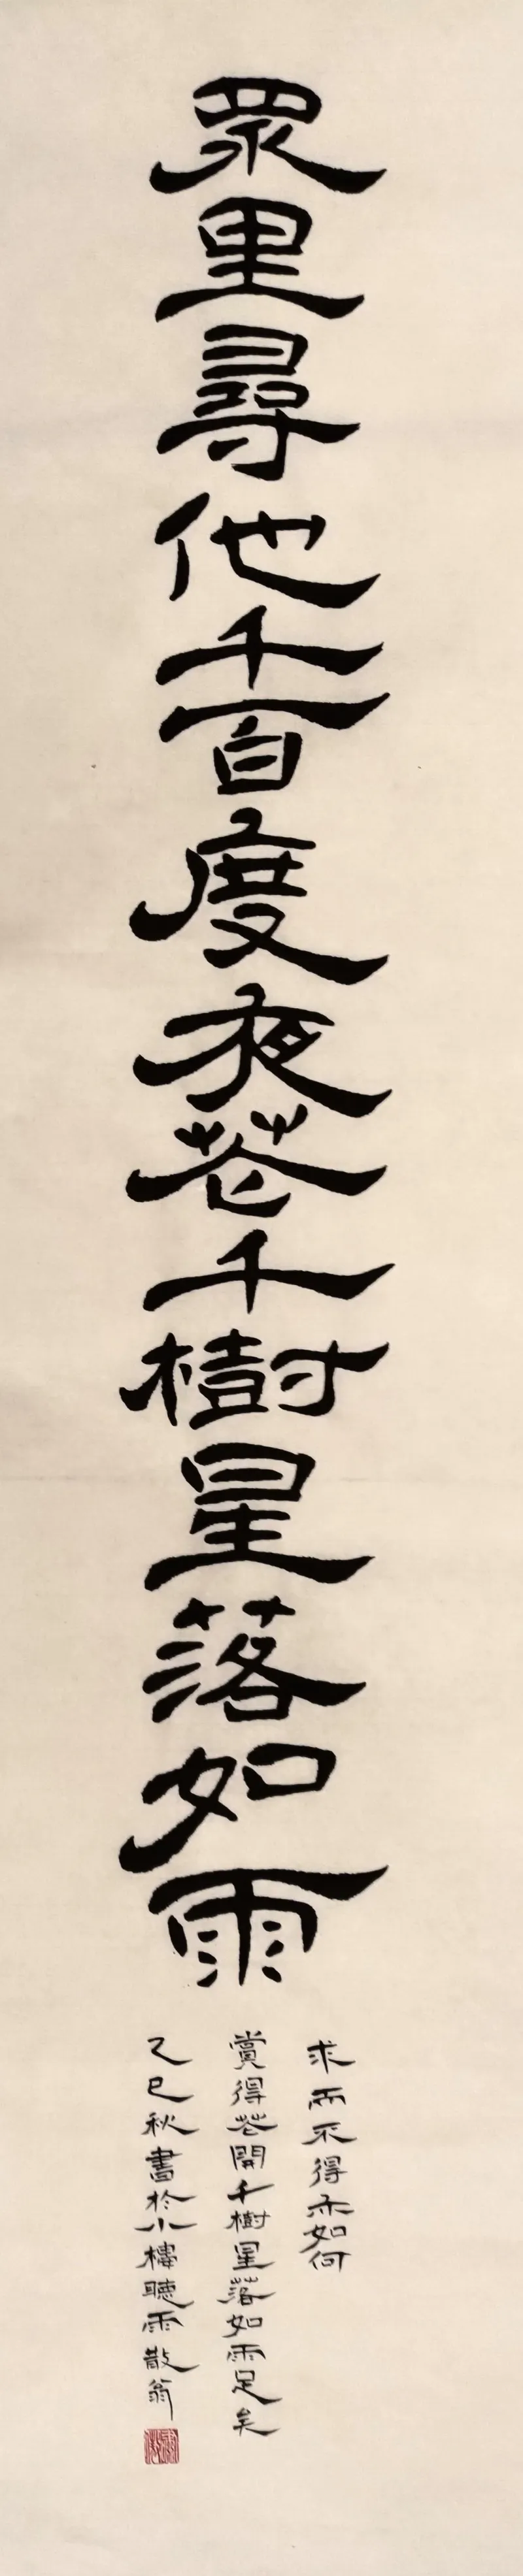 眾里尋他千百度夜花千樹星落如雨
求而不得亦如何
賞得花開千樹星落如雨足矣
乙巳秋書於小樓聽雨散翁